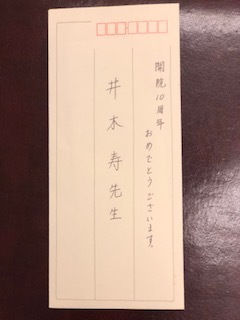 開院10周年
おめでとうございます。
井本寿先生